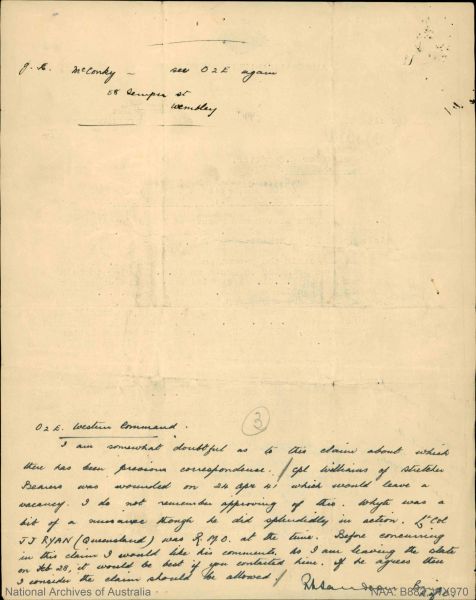 J. R. McConky — see O2E again
58 Semper st
Wembley
3
O2E. Western Command.
I am somewhat doubtful as to this claim about which
there has been previous correspondence. / Cpl Williams of stretcher
Bearers was wounded on 24 Apr 41 which would leave a
vacancy. I do not remember approving of this. Whyte was a
bit of a nuisance though he did splendidly in action. Lt Col
JJ RYAN (Queensland) was R.M.O. at the time. Before concurring
in this claim I would like his comments. As I am leaving the state
on Feb 28, it would be best if you contacted him. If he agrees then
I consider the claim should be allowed /
National Archives of Australia
NAA: B883